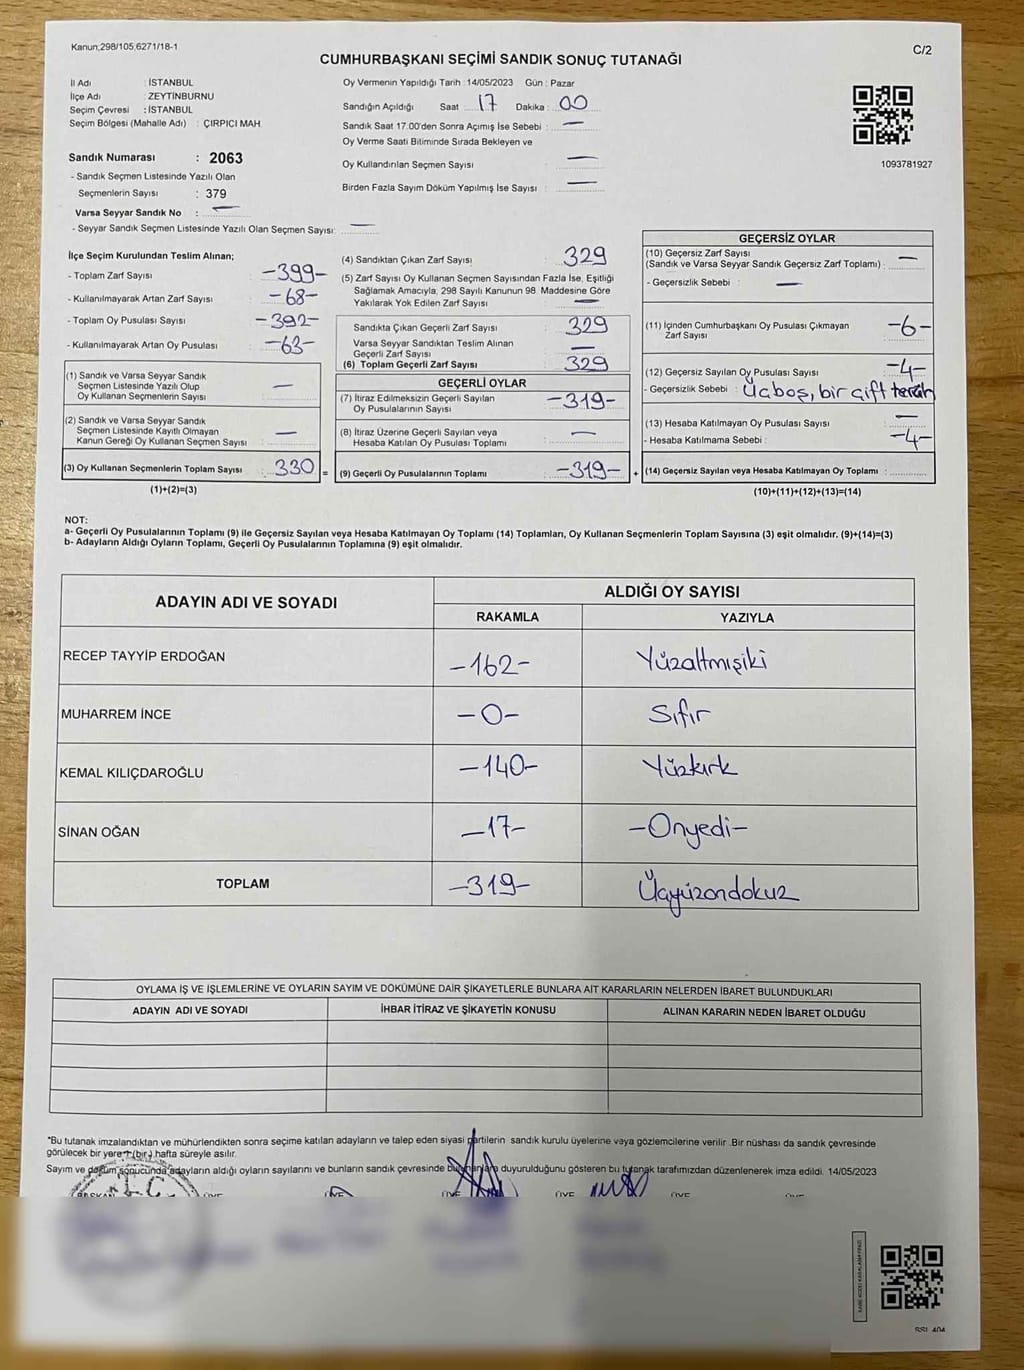 Kanun;298/105;6271/18-1
C/2
CUMHURBAŞKANI SEÇİMİ SANDIK SONUÇ TUTANAĞI
İl Adı : İSTANBUL
İlçe Adı : ZEYTİNBURNU
Seçim Çevresi : İSTANBUL
Seçim Bölgesi (Mahalle Adı) : ÇIRPICI MAH.
Sandık Numarası : 2063
- Sandık Seçmen Listesinde Yazılı Olan
Seçmenlerin Sayısı : 379
Varsa Seyyar Sandık No : —
- Seyyar Sandık Seçmen Listesinde Yazılı Olan Seçmen Sayısı: —
Oy Vermenin Yapıldığı Tarih : 14/05/2023 Gün : Pazar
Sandığın Açıldığı Saat : 17 Dakika : 00
Sandık Saat 17.00'den Sonra Açımış İse Sebebi : —
Oy Verme Saati Bitiminde Sırada Bekleyen ve
Oy Kullandırılan Seçmen Sayısı —
Birden Fazla Sayım Döküm Yapılmış İse Sayısı : —
1093781927
İlçe Seçim Kurulundan Teslim Alınan;
- Toplam Zarf Sayısı -399-
- Kullanılmayarak Artan Zarf Sayısı -68-
- Toplam Oy Pusulası Sayısı -392-
- Kullanılmayarak Artan Oy Pusulası -63-
(1) Sandık ve Varsa Seyyar Sandık
Seçmen Listesinde Yazılı Olup
Oy Kullanan Seçmenlerin Sayısı —
(2) Sandık ve Varsa Seyyar Sandık
Seçmen Listesinde Kayıtlı Olmayan
Kanun Gereği Oy Kullanan Seçmen Sayısı —
(3) Oy Kullanan Seçmenlerin Toplam Sayısı : 330 =
(1)+(2)=(3)
(4) Sandıktan Çıkan Zarf Sayısı 329
(5) Zarf Sayısı Oy Kullanan Seçmen Sayısından Fazla İse, Eşitliği
Sağlamak Amacıyla, 298 Sayılı Kanunun 98. Maddesine Göre
Yakılarak Yok Edilen Zarf Sayısı —
Sandıkta Çıkan Geçerli Zarf Sayısı 329
Varsa Seyyar Sandıktan Teslim Alınan
Geçerli Zarf Sayısı —
(6) Toplam Geçerli Zarf Sayısı 329
GEÇERLİ OYLAR
(7) İtiraz Edilmeksizin Geçerli Sayılan
Oy Pusulalarının Sayısı -319-
(8) İtiraz Üzerine Geçerli Sayılan veya
Hesaba Katılan Oy Pusulası Toplamı —
(9) Geçerli Oy Pusulalarının Toplamı -319- +
GEÇERSİZ OYLAR
(10) Geçersiz Zarf Sayısı
(Sandık ve Varsa Seyyar Sandık Geçersiz Zarf Toplamı) : —
- Geçersizlik Sebebi : —
(11) İçinden Cumhurbaşkanı Oy Pusulası Çıkmayan
Zarf Sayısı -6-
(12) Geçersiz Sayılan Oy Pusulası Sayısı -4-
- Geçersizlik Sebebi : Üçboş, bir çift tercih
(13) Hesaba Katılmayan Oy Pusulası Sayısı —
- Hesaba Katılmama Sebebi : -4-
(14) Geçersiz Sayılan veya Hesaba Katılmayan Oy Toplamı :
(10)+(11)+(12)+(13)=(14)
NOT:
a- Geçerli Oy Pusulalarının Toplamı (9) ile Geçersiz Sayılan veya Hesaba Katılmayan Oy Toplamı (14) Toplamları, Oy Kullanan Seçmenlerin Toplam Sayısına (3) eşit olmalıdır. (9)+(14)=(3)
b- Adayların Aldığı Oyların Toplamı, Geçerli Oy Pusulalarının Toplamına (9) eşit olmalıdır.
ADAYIN ADI VE SOYADI
ALDIĞI OY SAYISI
RAKAMLA YAZIYLA
RECEP TAYYİP ERDOĞAN -162- Yüzaltmışiki
MUHARREM İNCE -0- Sıfır
KEMAL KILIÇDAROĞLU -140- Yüzkırk
SİNAN OĞAN -17- -Onyedi-
TOPLAM -319- Üçyüzondokuz
OYLAMA İŞ VE İŞLEMLERİNE VE OYLARIN SAYIM VE DÖKÜMÜNE DAİR ŞİKAYETLERLE BUNLARA AİT KARARLARIN NELERDEN İBARET BULUNDUKLARI
ADAYIN ADI VE SOYADI İHBAR İTİRAZ VE ŞİKAYETİN KONUSU ALINAN KARARIN NEDEN İBARET OLDUĞU
*Bu tutanak imzalandıktan ve mühürlendikten sonra seçime katılan adayların ve talep eden siyasi partilerin sandık kurulu üyelerine veya gözlemcilerine verilir .Bir nüshası da sandık çevresinde
görülecek bir yere 1 (bir) hafta süreyle asılır.
Sayım ve döküm sonucunda adayların aldığı oyların sayılarını ve bunların sandık çevresinde bulunanlara duyurulduğunu gösteren bu tutanak tarafımızdan düzenlenerek imza edildi. 14/05/2023
BAŞKAN ÜYE ÜYE ÜYE ÜYE ÜYE